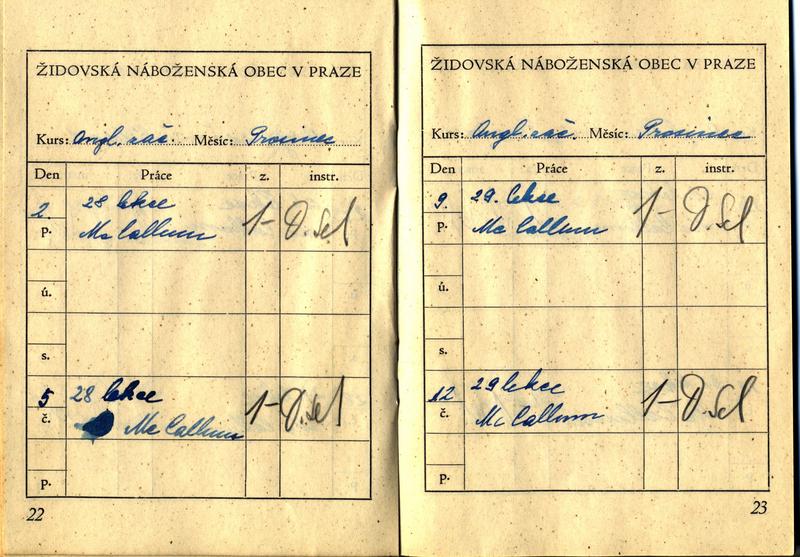 ŽIDOVSKÁ NÁBOŽENSKÁ OBEC V PRAZE
Kurs: Angl. zač. Měsíc: Prosinec
Den Práce z. instr.
2. 28 lekce 1-
p. Mc Callum
ú.
s.
5 28 lekce 1-
č. Mc Callum
p.
22
ŽIDOVSKÁ NÁBOŽENSKÁ OBEC V PRAZE
Kurs: Angl. zač. Měsíc: Prosinec
Den Práce z. instr.
9. 29. lekce 1-
p. Mc Callum
ú.
s.
12 29 lekce 1-
č. Mc Callum
p.
23